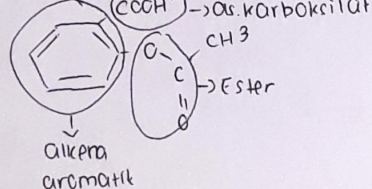 COOH -> as. karboksilat
O CH3
C -> Ester
O
alkena
aromatik